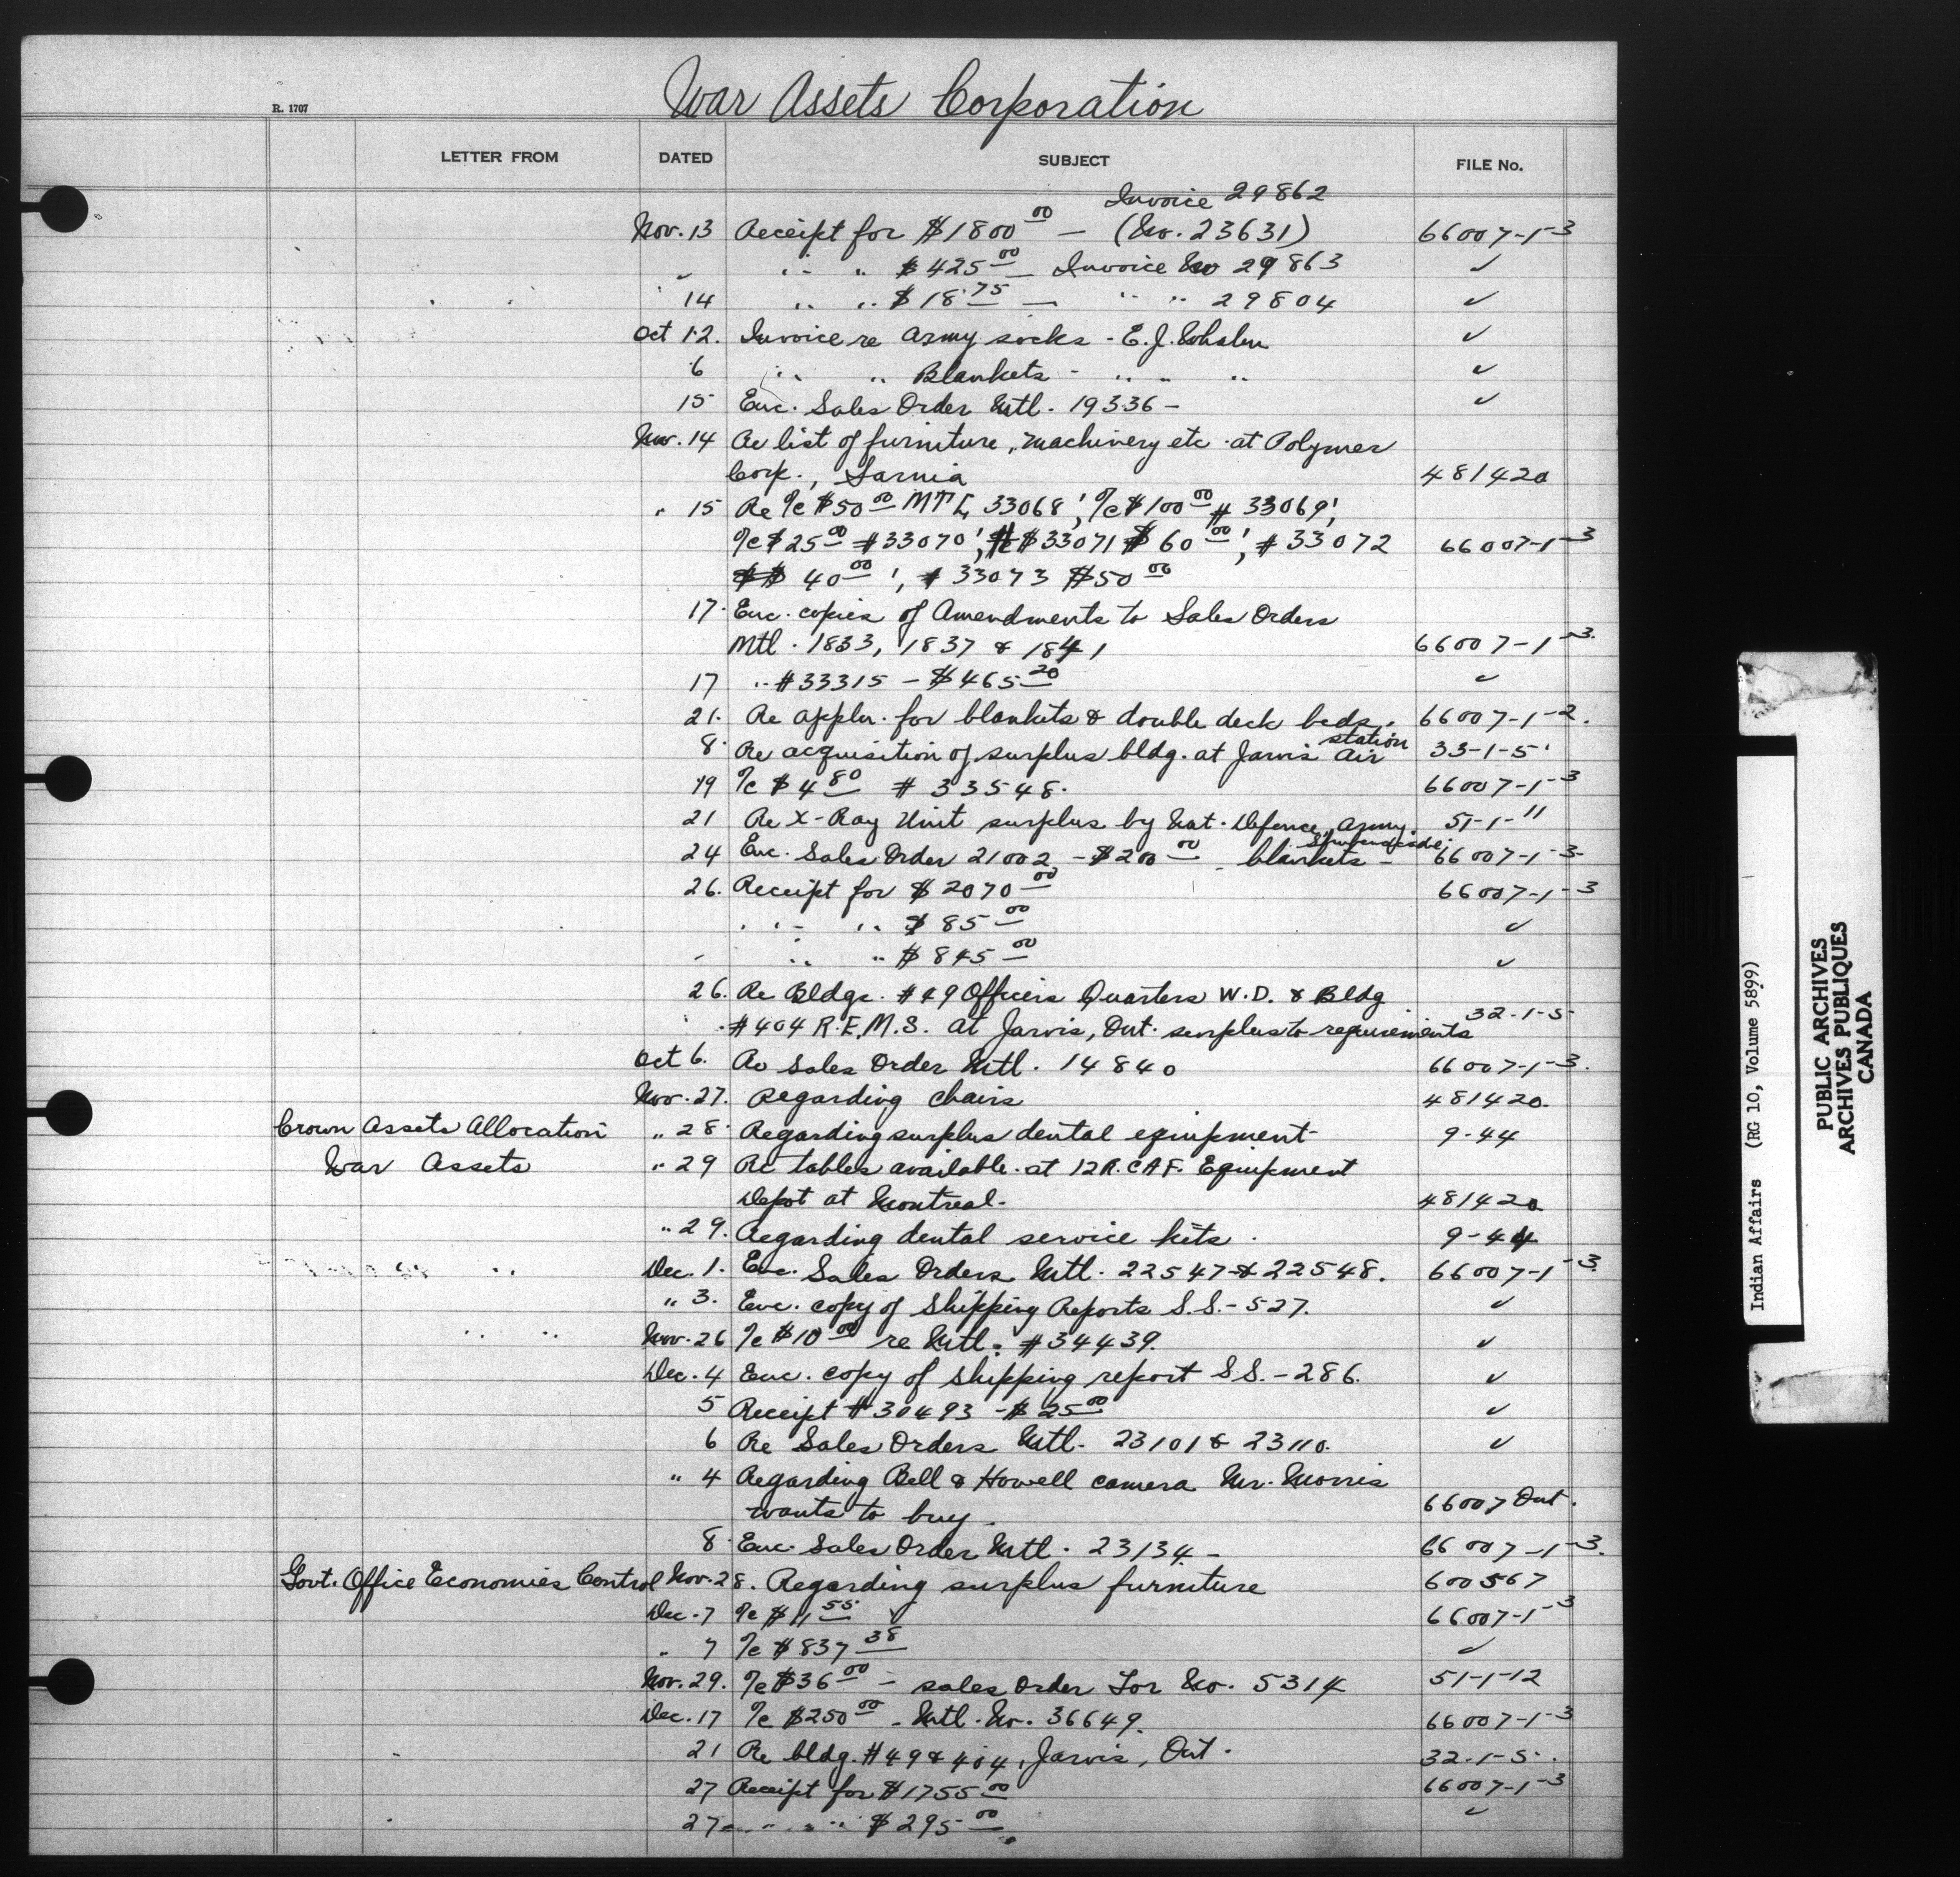 War Assets Corporation
R. 1707
LETTER FROM DATED SUBJECT FILE No.
Invoice 29862
Nov. 13 Receipt for $1800 00 — (No. 23631) 66007-1-3
" " " $425 00 — Invoice No 29863 ✓
14 " " $18.75 — " " 29804 ✓
Oct 12. Invoice re Army socks - E. J. Whalen ✓
6 " " Blankets - " " " ✓
15 Enc. Sales Order Mtl. 19336 — ✓
Nov. 14 Re list of furniture, machinery etc. at Polymer
Corp., Sarnia 481420
" 15 Re %c $50 00 MTL 33068', %c $100 00 # 33069',
%c $25 00 #33070', $33071 $60 00', #33072 66007-1-3
40 00', # 33073 $50 00
17. Enc. copies of Amendments to Sales Orders
Mtl. 1833, 1837 & 1841 66007-1-3.
17 " #33315 — $465 20 ✓
21. Re appln. for blankets & double deck beds. 66007-1-2.
8. Re acquisition of surplus bldg. at Jarvis Air station 33-1-5'
19 %c $4 80 # 33548. 66007-1-3
21 Re X-Ray Unit surplus by Nat. Defence, Army. 51-1-11
24 Enc. Sales Order 21002 — $200 00 — blankets — 66007-1-3-
26. Receipt for $2070 00 66007-1-3
" " $85 00 ✓
" " " $845 00 ✓
26. Re Bldgs. #49 Officers Quarters W.D. & Bldg
#404 R.E.M.S. at Jarvis, Ont. surplus to requirements 32-1-5-
Oct 6. Re Sales Order Mtl. 14840 66007-1-3.
Nov. 27. Regarding chairs 481420.
Crown Assets Allocation " 28. Regarding surplus dental equipment 9-44
War Assets " 29 Re tables available at 12 R.C.A.F. Equipment
Depot at Montreal. 481420
" 29. Regarding dental service kits. 9-44
" Dec. 1. Enc. Sales Orders Mtl. 22547 & 22548. 66007-1-3
" 3. Enc. copy of Shipping Reports S.S.-527. ✓
" " Nov. 26 %c $10 00 re Mtl. #34439. ✓
Dec. 4 Enc. copy of shipping report S.S.-286. ✓
5 Receipt #30493 — $25 00 ✓
6 Re Sales Orders Mtl. 23101 & 23110. ✓
" 4 Regarding Bell & Howell camera Mr. Morris
wants to buy. 66007 Ont.
8. Enc. Sales Order Mtl. 23134 — 66007-1-3.
Govt. Office Economies Control Nov. 28. Regarding surplus furniture 600567
Dec. 7 %c $11 55 66007-1-3
" 7 %c $837 38 ✓
Nov. 29. %c $36 00 — sales order Tor No. 5314 51-1-12
Dec. 17 %c $250 00 — Mtl. No. 36649. 66007-1-3
21 Re bldg. #49 & 404, Jarvis, Ont. 32-1-5.
27 Receipt for $1755 00 66007-1-3
27 " " " $295 00. ✓
Indian Affairs (RG 10, Volume 5899)
PUBLIC ARCHIVES
ARCHIVES PUBLIQUES
CANADA